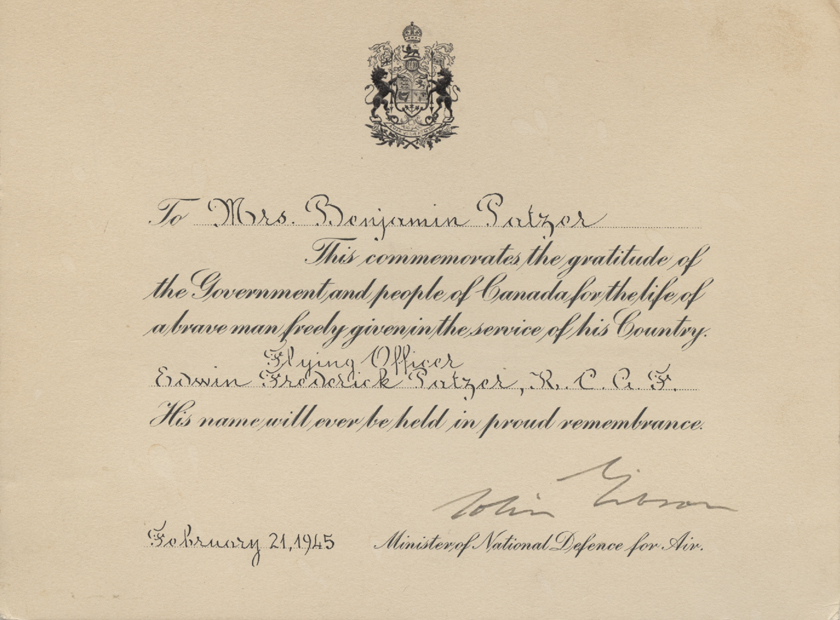 To Mrs. Benjamin Patzer
This commemorates the gratitude of
the Government and people of Canada for the life of
a brave man freely given in the service of his Country.
Flying Officer
Edwin Frederick Patzer, R. C. A. F.
His name will ever be held in proud remembrance.
Colin Gibson
February 21, 1945 Minister of National Defence for Air.